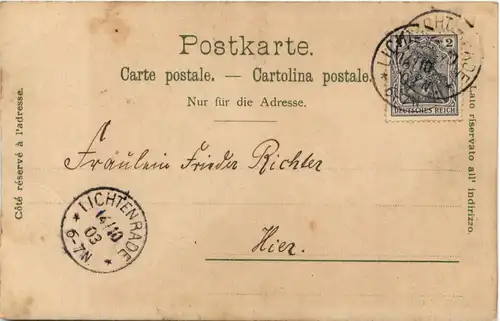 Postkarte.
Carte postale. — Cartolina postale.
Nur für die Adresse.
Côté réservé à l'adresse.
Lato riservato all' indirizzo.
2
DEUTSCHES REICH
LICHTENRADE
14/10
03
6-7N
Fräulein Frieder Richter
LICHTENRADE
14/10
03
6-7N
Hier.